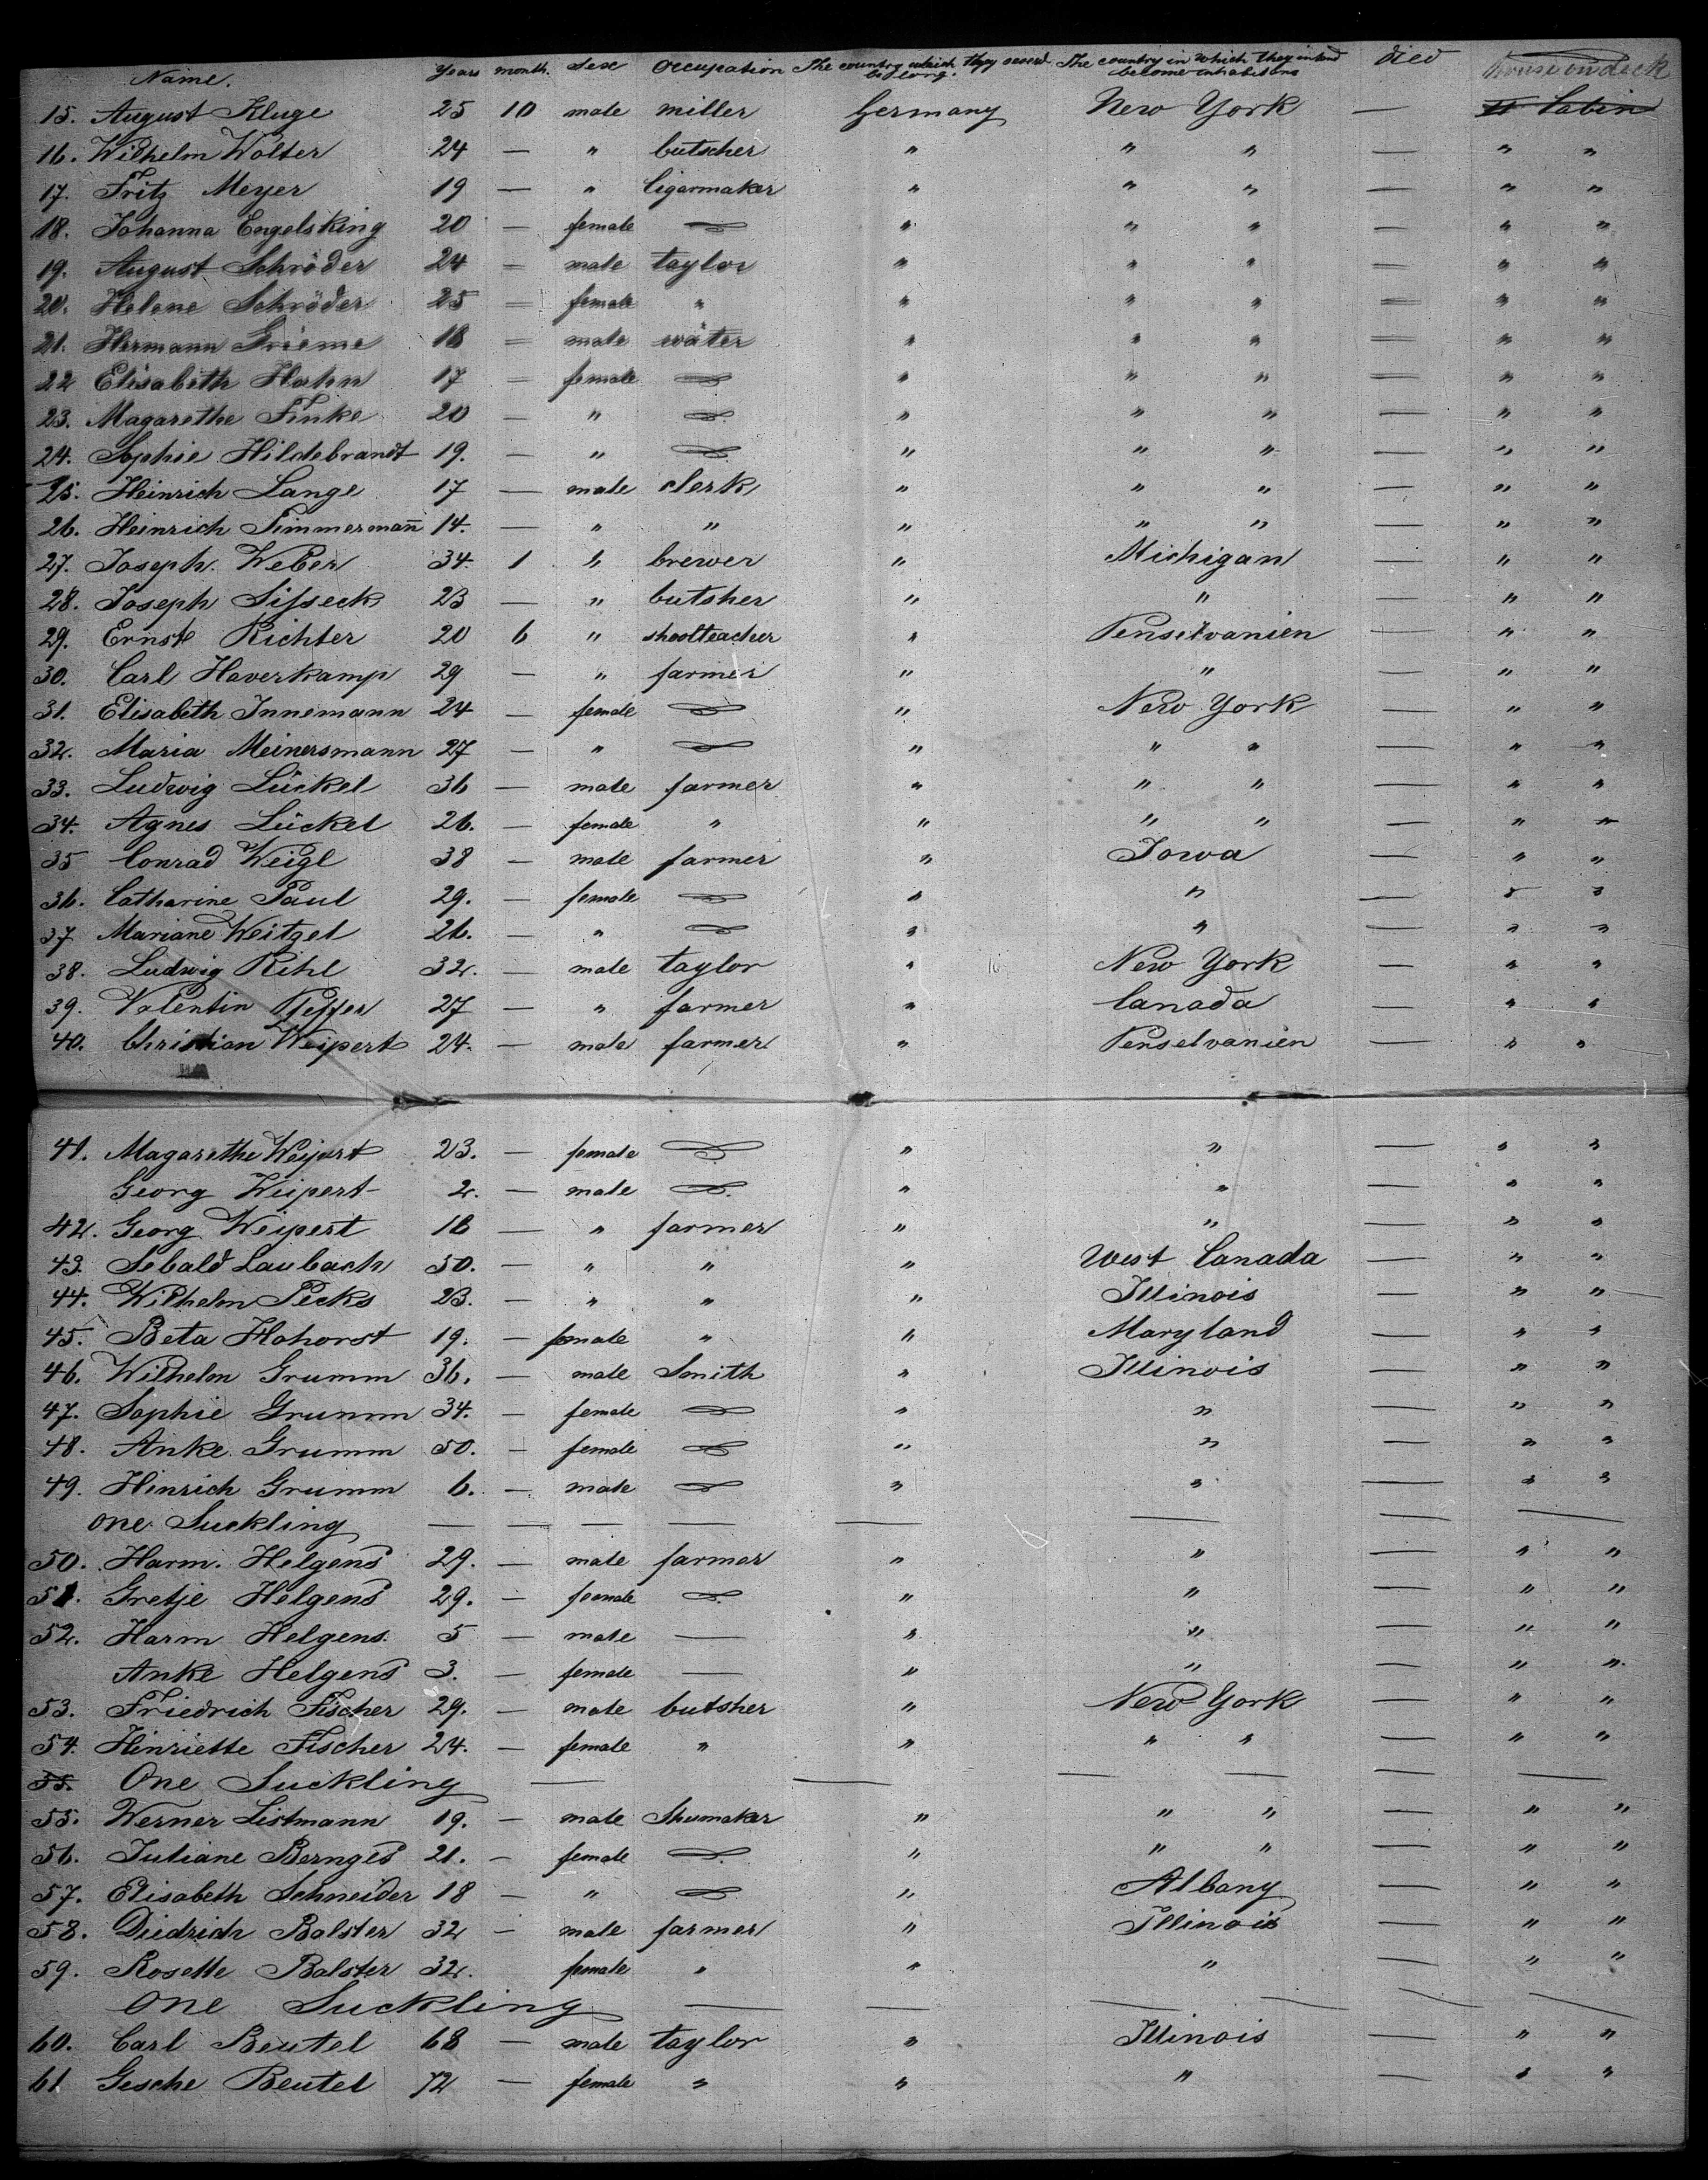 Name. Years month. Sex Occupation The country which they severl. belong. The country in which they intend become inhabitans died House on deck
15. August Kluge 25 10 male miller Germany New York — II Cabin
16. Wilhelm Wolter 24 — " butscher " " " — " "
17. Fritz Meyer 19 — " Cigarmaker " " " — " "
18. Johanna Engelsking 20 — female — " " " — " "
19. August Schröder 24 — male taylor " " " — " "
20. Helene Schröder 25 — female " " " " — " "
21. Hermann Grieme 18 — male wäter " " " — " "
22 Elisabeth Hahn 17 — female — " " " — " "
23. Magarethe Finke 20 — " — " " " — " "
24. Sophie Hildebrandt 19. — " — " " " — " "
25. Heinrich Lange 17 — male clerk " " " — " "
26. Heinrich Timmermañ 14. — " " " " " — " "
27. Joseph. Weber 34. 1 " brewer " Michigan — " "
28. Joseph Sisseck 23 — " butsher " " — " "
29. Ernst Richter 20 6 " shoolteacher " Penselvanien — " "
30. Carl Haverkamp 29 — " farmer " " — " "
31. Elisabeth Innemann 24 — female — " New York — " "
32. Maria Meinersmann 27 — " — " " " — " "
33. Ludwig Lückel 36 — male farmer " " " — " "
34. Agnes Lückel 26. — female " " " " — " "
35 Conrad Weigl 38 — male farmer " Iowa — " "
36. Catharine Paul 29. — female — " " — " "
37 Mariane Weitzel 26. — " — " " — " "
38. Ludwig Rihl 32. — male taylor " New York — " "
39. Valentin Pfeffer 27 — " farmer " Canada — " "
40. Christian Weipert 24. — male farmer " Penselvanien — " "
41. Magarethe Weipert 23. — female — " " — " "
Georg Weipert 2. — male — " " — " "
42. Georg Weipert 16 — " farmer " " — " "
43. Sebald Laubach 50. — " " " West Canada — " "
44. Wilhelm Pecks 23. — " " " Illinois — " "
45. Beta Hohorst 19. — female " " Maryland — " "
46. Wilhelm Grumm 36. — male Smith " Illinois — " "
47. Sophie Grumm 34. — female — " " — " "
48. Anke Grumm 50. — female — " " — " "
49. Hinrich Grumm 6. — male — " " — " "
one Suckling — — — — — — — —
50. Harm. Helgens 29. — male farmer " " — " "
51. Gretje Helgens 29. — female — " " — " "
52. Harm Helgens. 5 — male — " " — " "
Anke Helgens 3. — female — " " — " "
53. Friedrich Fischer 29. — male butsher " New York — " "
54. Hinriette Fischer 24. — female " " " " — " "
55. One Suckling — — — — — —
55. Werner Listmann 19. — male Shumaker " " " — " "
56. Juliane Bernges 21. — female — " " " — " "
57. Elisabeth Schneider 18 — " — " Albany — " "
58. Diedrich Balster 32 — male farmer " Illinois — " "
59. Rosette Balster 32. female " " " — " "
One Suckling — — — — — —
60. Carl Beutel 68 — male taylor " Illinois — " "
61 Gesche Beutel 72 — female " " " — " "